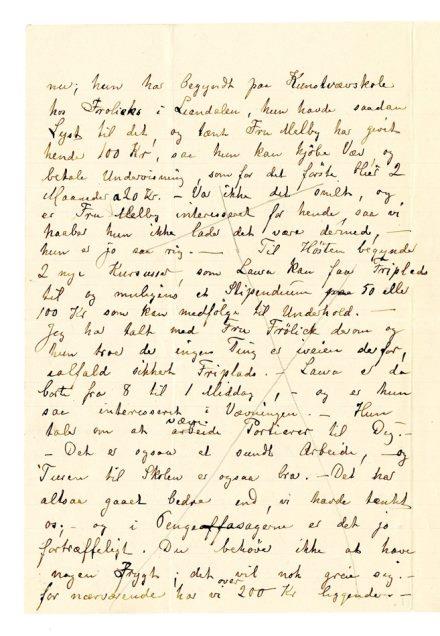 nu; hun har begyndt paa Kunstvævskole
hos Frølichs i Leandalen, hun havde saadan
Lyst til det, og tænk Fru Melby har givet
hende 100 Kr, saa hun kan kjøbe Væv, og
betale Undervisning, som for det første blir 2
Maaneder a 20 Kr. – Var ikke det snilt, og
er Fru Melby interesseret for hende, saa vi
haaber hun ikke lader det være dermed, –
hun er jo saa rig. – Til Høsten begynder
2 nye Kursuser, som Lawra kan faa Friplads
til og muligens et Stipendium 50 eller
100 Kr som kan medfølge til Underhold. –
Jeg har talt med Fru Frölich derom og
hun tror der ingen Ting er iveien derfor,
ialfald sikkert Friplads. – Lawra er da
borte fra 8 til 1 Middag, – og er hun
saa interesseret i Vævningen. – Hun
taler om at væve arbeide Portierer til Dig. –
– Det er ogsaa et sundt Arbeide, – og
Turen til Skolen er ogsaa bra. – Det har
altsaa gaaet bedre end, vi havde tænkt
os; – og i Pengeaffasagerne er det jo
fortræffeligt. Du behøver ikke at have
nogen Frygt, det vil nok greie sig. –
for nærværende har vi over 200 Kr liggende. –